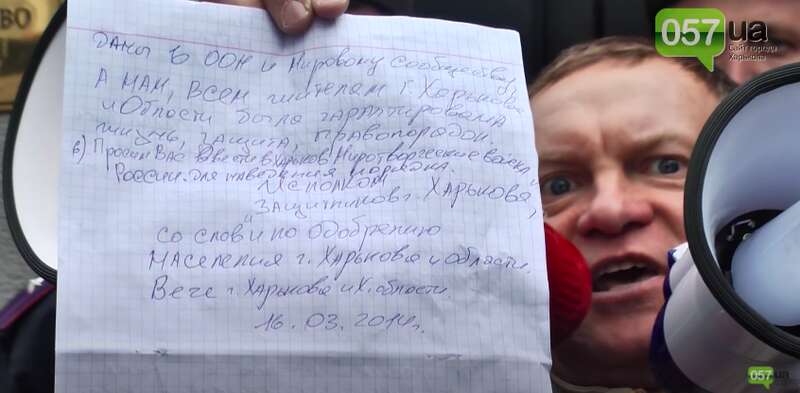 ВО
057.ua
Сайт города
Харькова
даны в ООН и Мировому Сообществу,
А НАМ, ВСЕМ жителям г. Харькова
и Области была гарантирована
жизнь, защита, правопорядок.
6) Просим ВАС ввести в Харьков Миротворческие войска
России для наведения порядка.
Исполком
Защитников г. Харькова,
со слов и по одобрению
населения г. Харькова и области.
Вече г. Харькова и Х. области.
16.03.2014г.
057.ua